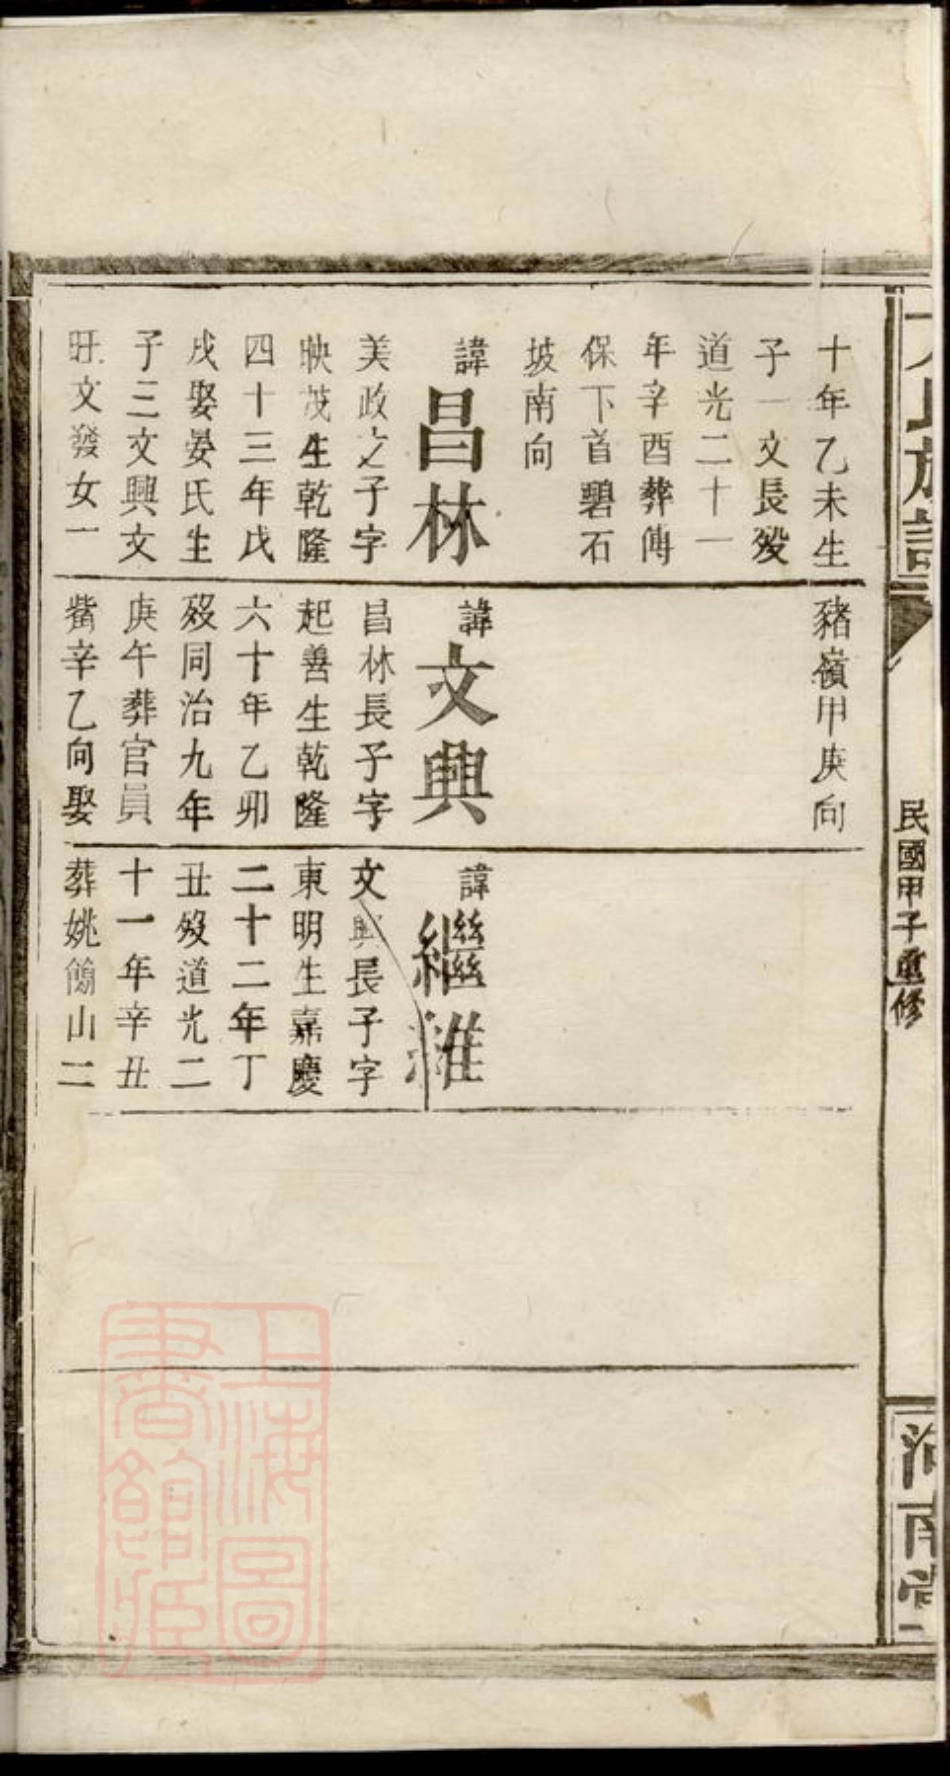 氏族譜
民國甲子重修
南堂
十年乙未生
子一文長殁
道光二十一
年辛酉葬傳
保下首碧石
坡南向
諱昌林
美政之子字
映茂生乾隆
四十三年戊
戌娶晏氏生
子三文興文
旺文發女一
豬嶺甲庚向
諱文興
昌林長子字
起善生乾隆
六十年乙卯
殁同治九年
庚午葬官員
觜辛乙向娶
諱繼
文興長子字
東明生嘉慶
二十二年丁
丑殁道光二
十一年辛丑
葬姚山二
上海圖書館藏